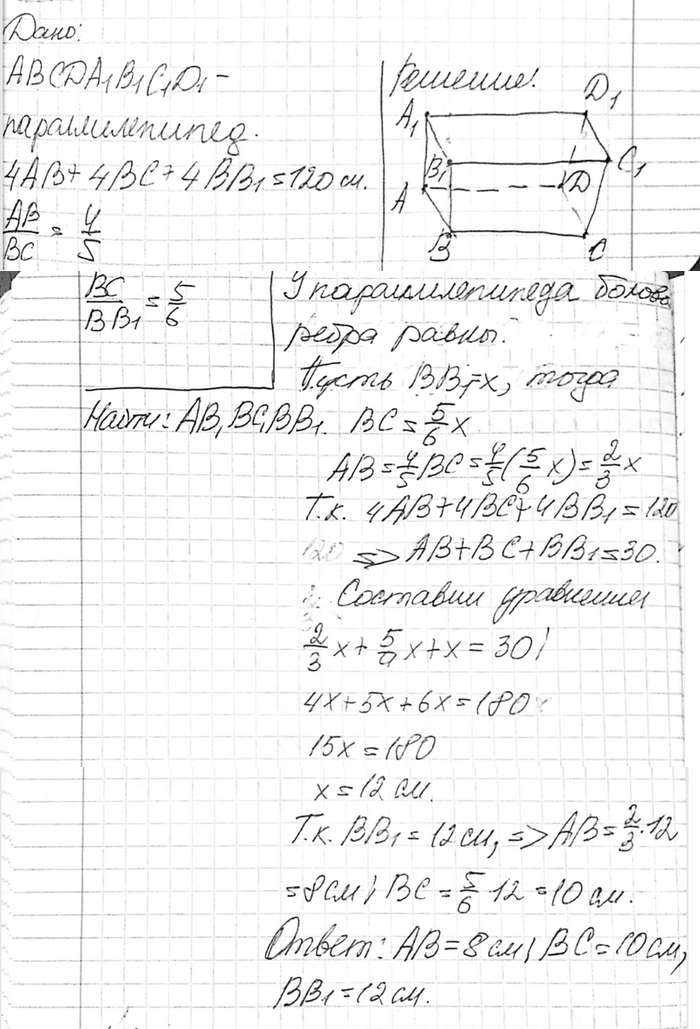 Дано:
ABCDA₁B₁C₁D₁ –
параллелепипед.
4AB + 4BC + 4BB₁ = 120 см.
AB/BC = 4/5
Решение:
A₁ D₁
B₁ C₁
A D
B C
BC/BB₁ = 5/6
Найти: AB, BC, BB₁.
У параллелепипеда боковые
ребра равны.
Пусть BB₁=x, тогда
BC = 5/6 x
AB = 4/5 BC = 4/5 (5/6 x) = 2/3 x
Т.к. 4AB + 4BC + 4BB₁ = 120
120 => AB + BC + BB₁ = 30.
Составим уравнение
2/3 x + 5/9 x + x = 30 /
4x + 5x + 6x = 180
15x = 180
x = 12 см.
Т.к. BB₁ = 12 см, => AB = 2/3 · 12
= 8 см; BC = 5/6 · 12 = 10 см.
Ответ: AB = 8 см; BC = 10 см,
BB₁ = 12 см.